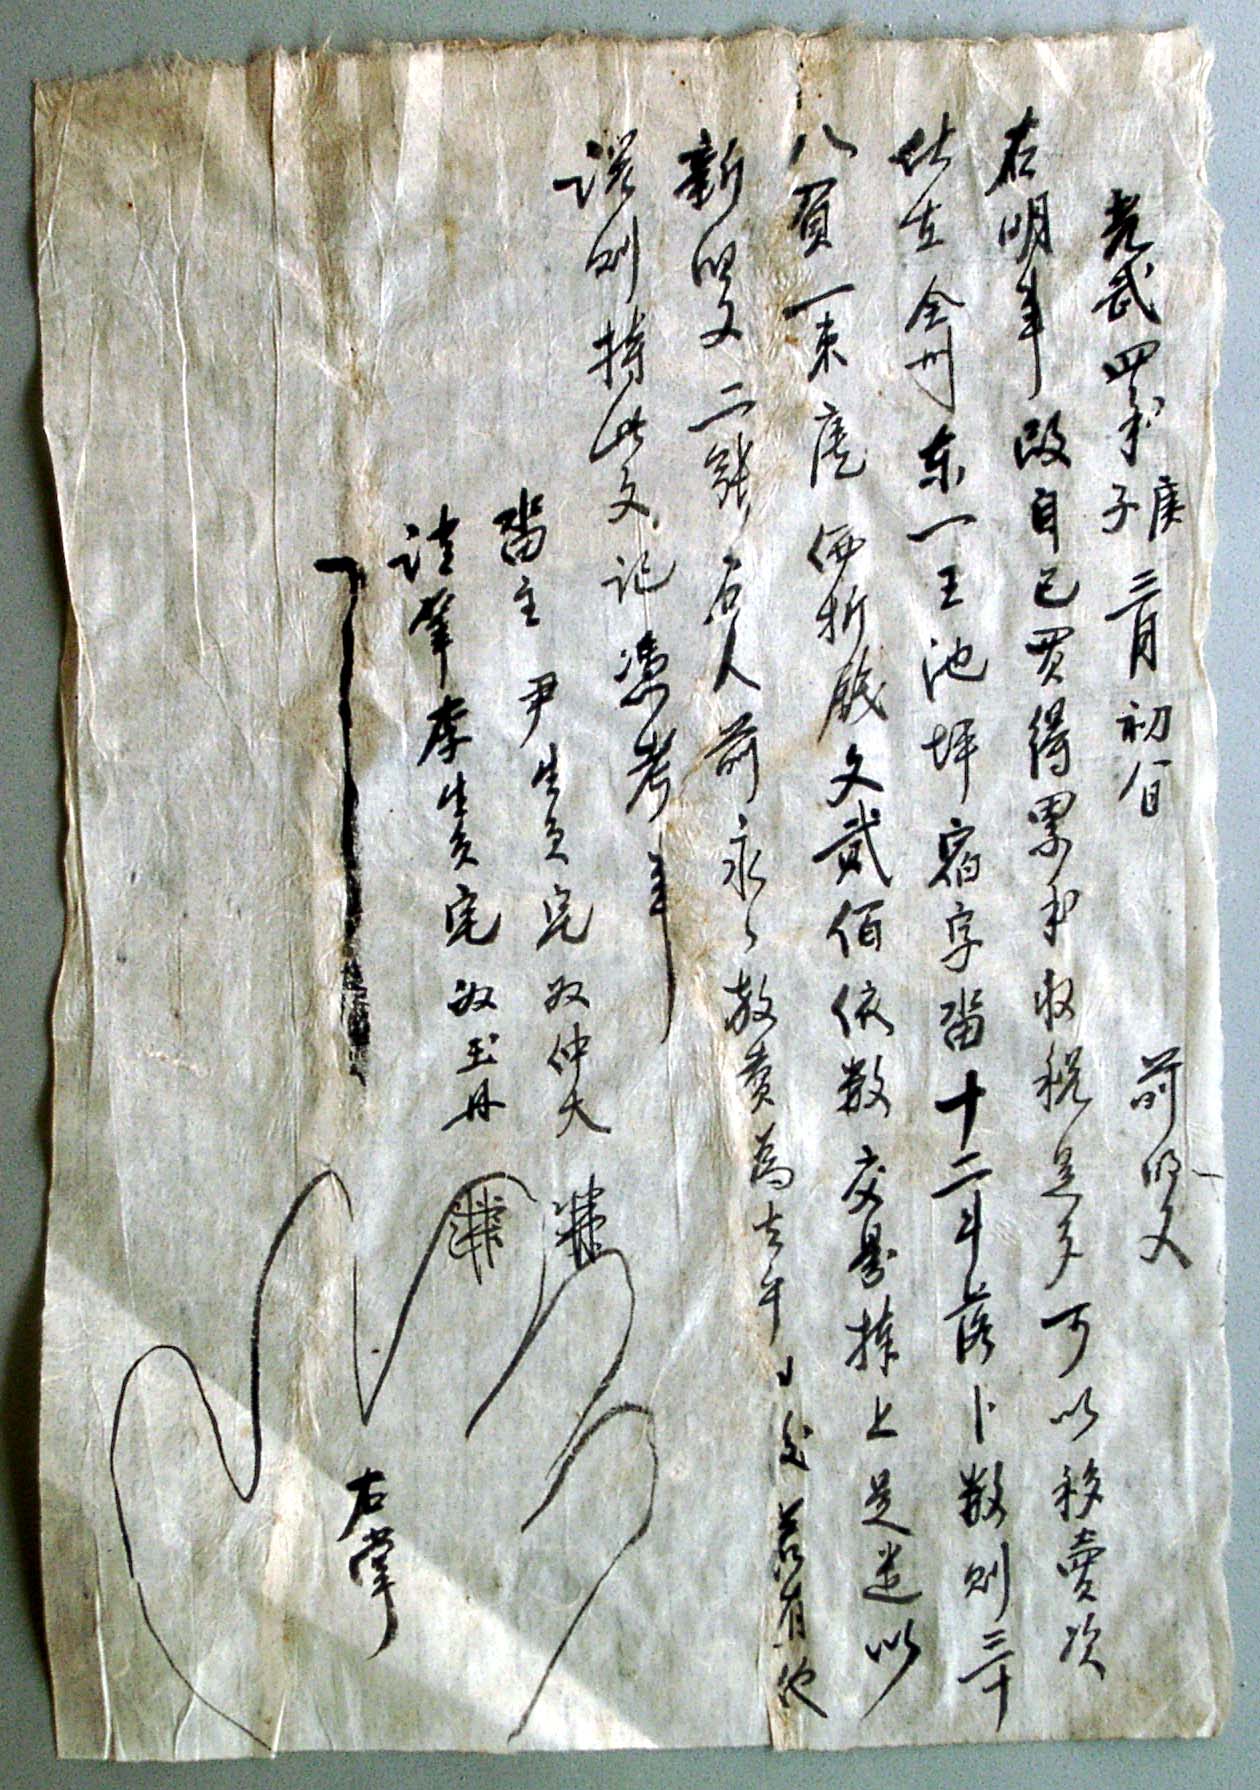 光武四年庚子二月初百 前明文
右明事段自己買得累年收稅是多可以移賣次
伏在全州東一王池坪宿字畓十二斗落卜數則三十
八負一束庫価折錢文貳佰依數交易捧上是遣以
新明文二張右人前永永放賣爲去乎日後若有他
談則持此文記憑考事
畓主 尹生員宅奴仲大
證筆李生員宅奴玉丹
右掌